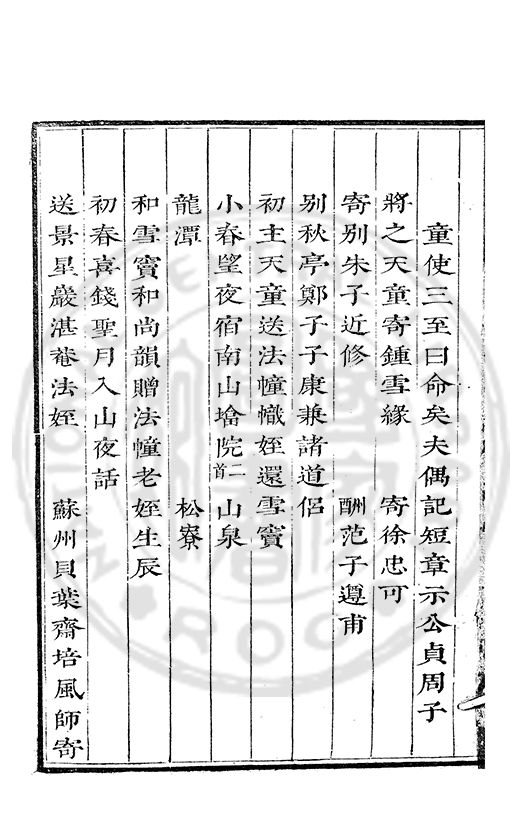 童使三至曰命矣夫偶記短章示公貞周子
將之天童寄鍾雪緣　寄徐忠可
寄別朱子近修　酬范子遵甫
別秋亭鄭子子康兼諸道侶
初主天童送法幢幟姪還雪竇
小春朢夜宿南山墖院二首　山泉
龍潭　松寮
和雪竇和尚韻贈法幢老姪生辰
初春喜錢聖月入山夜話
送景星巖湛菴法姪　蘇州貝葉齋培風師寄